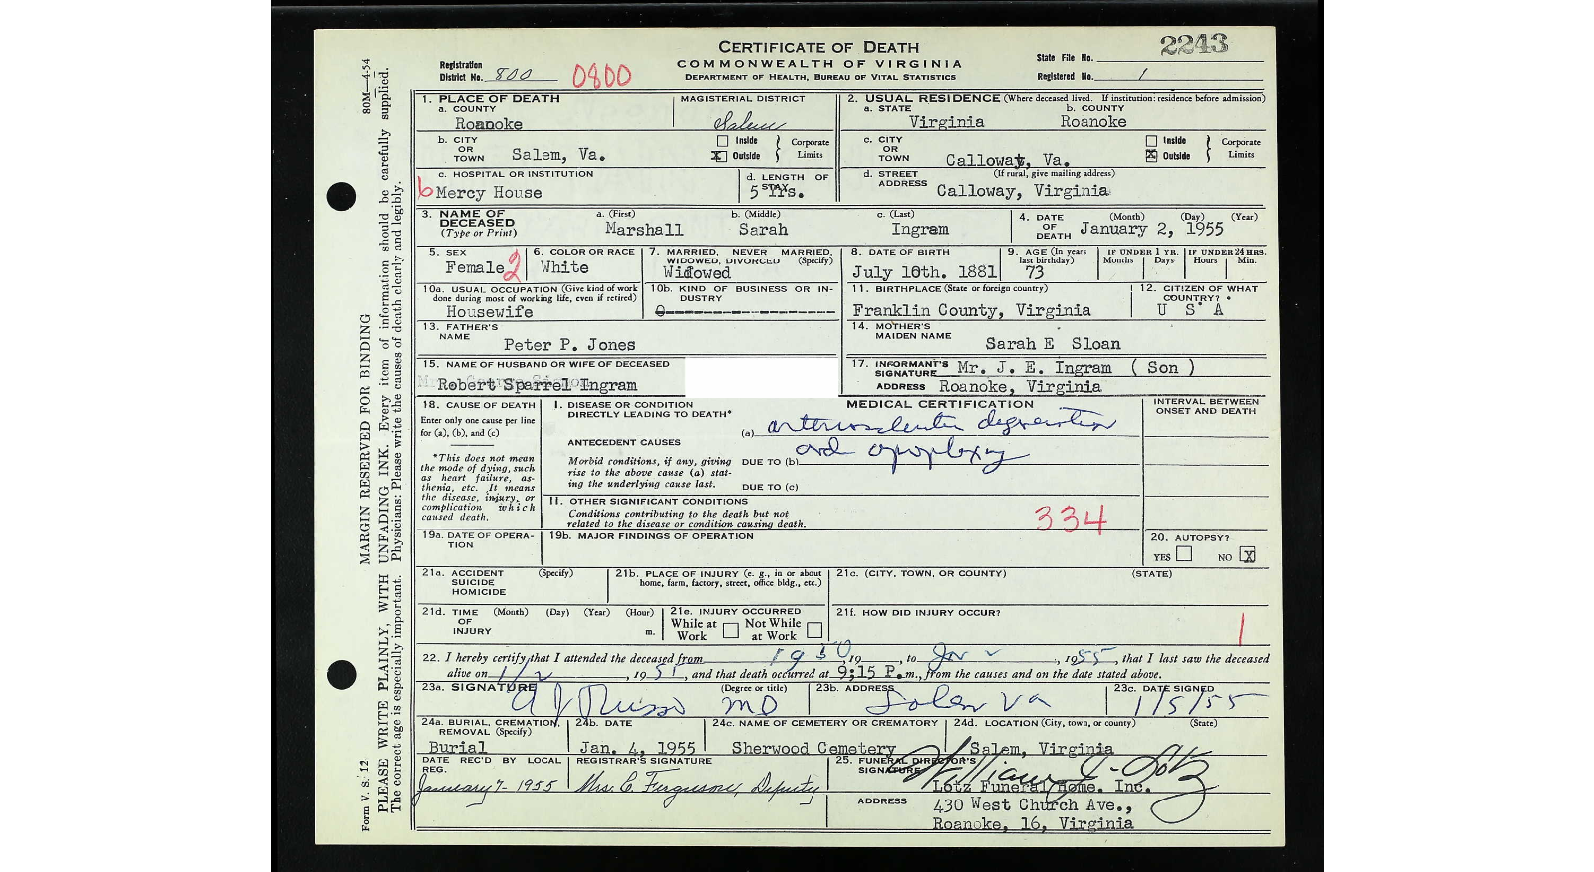 CERTIFICATE OF DEATH
COMMONWEALTH OF VIRGINIA
DEPARTMENT OF HEALTH, BUREAU OF VITAL STATISTICS
Registration District No. 800 0800
2243
State File No.
Registered No. 1
80M—4-54
1. PLACE OF DEATH
a. COUNTY
Roanoke
MAGISTERIAL DISTRICT
Salem
2. USUAL RESIDENCE (Where deceased lived. If institution: residence before admission)
a. STATE
Virginia
b. COUNTY
Roanoke
b. CITY OR TOWN Salem, Va.
Inside
X Outside
Corporate Limits
c. CITY OR TOWN Calloway, Va.
Inside
X Outside
Corporate Limits
c. HOSPITAL OR INSTITUTION
6 Mercy House
d. LENGTH OF STAY
5 Yrs.
d. STREET ADDRESS (If rural, give mailing address)
Calloway, Virginia
3. NAME OF DECEASED (Type or Print)
a. (First)
Marshall
b. (Middle)
Sarah
c. (Last)
Ingram
4. DATE OF DEATH (Month) (Day) (Year)
January 2, 1955
5. SEX
Female 2
6. COLOR OR RACE
White
7. MARRIED, NEVER MARRIED, WIDOWED, DIVORCED (Specify)
Widowed
8. DATE OF BIRTH
July 10th. 1881
9. AGE (In years last birthday)
73
IF UNDER 1 YR. Months Days
IF UNDER 24 HRS. Hours Min.
10a. USUAL OCCUPATION (Give kind of work done during most of working life, even if retired)
Housewife
10b. KIND OF BUSINESS OR INDUSTRY
11. BIRTHPLACE (State or foreign country)
Franklin County, Virginia
12. CITIZEN OF WHAT COUNTRY?
U S A
13. FATHER'S NAME
Peter P. Jones
14. MOTHER'S MAIDEN NAME
Sarah E Sloan
15. NAME OF HUSBAND OR WIFE OF DECEASED
Robert Sparrel Ingram
17. INFORMANT'S SIGNATURE Mr. J. E. Ingram ( Son )
ADDRESS Roanoke, Virginia
18. CAUSE OF DEATH
Enter only one cause per line for (a), (b), and (c)
*This does not mean the mode of dying, such as heart failure, asthenia, etc. It means the disease, injury, or complication which caused death.
MEDICAL CERTIFICATION
INTERVAL BETWEEN ONSET AND DEATH
I. DISEASE OR CONDITION DIRECTLY LEADING TO DEATH*
(a) arteriosclerotic degeneration
ANTECEDENT CAUSES
and apoplexy
Morbid conditions, if any, giving rise to the above cause (a) stating the underlying cause last.
DUE TO (b)
DUE TO (c)
II. OTHER SIGNIFICANT CONDITIONS
Conditions contributing to the death but not related to the disease or condition causing death.
334
19a. DATE OF OPERATION
19b. MAJOR FINDINGS OF OPERATION
20. AUTOPSY?
YES NO X
21a. ACCIDENT SUICIDE HOMICIDE (Specify)
21b. PLACE OF INJURY (e. g., in or about home, farm, factory, street, office bldg., etc.)
21c. (CITY, TOWN, OR COUNTY) (STATE)
21d. TIME OF INJURY (Month) (Day) (Year) (Hour) m.
21e. INJURY OCCURRED
While at Work Not While at Work
21f. HOW DID INJURY OCCUR?
1
22. I hereby certify that I attended the deceased from 1950, 19 , to Jan 2, 1955, that I last saw the deceased
alive on 1/2, 1951, and that death occurred at 9;15 P.m., from the causes and on the date stated above.
23a. SIGNATURE (Degree or title) MD
23b. ADDRESS
Salem Va
23c. DATE SIGNED
1/5/55
24a. BURIAL, CREMATION, REMOVAL (Specify)
Burial
24b. DATE
Jan. 4, 1955
24c. NAME OF CEMETERY OR CREMATORY
Sherwood Cemetery
24d. LOCATION (City, town, or county) (State)
Salem, Virginia
DATE REC'D BY LOCAL REG.
January 7- 1955
REGISTRAR'S SIGNATURE
Mrs. C. Ferguson, Deputy
25. FUNERAL DIRECTOR'S SIGNATURE
Lotz Funeral Home. Inc.
ADDRESS 430 West Church Ave.,
Roanoke, 16, Virginia
Form V. S. 12
MARGIN RESERVED FOR BINDING
PLEASE WRITE PLAINLY, WITH UNFADING INK. Every item of information should be carefully supplied.
The correct age is especially important. Physicians: Please write the causes of death clearly and legibly.